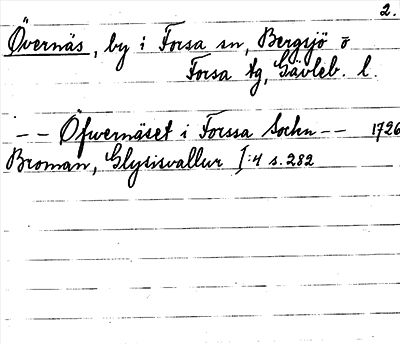 2.
Övernäs, by i Forsa sn, Bergsjö o
Forsa tg, Gävleb. l.
-- Öfwernäset i Forssa Sochn -- 1726
Broman, Glysisvallur I:4 s. 282